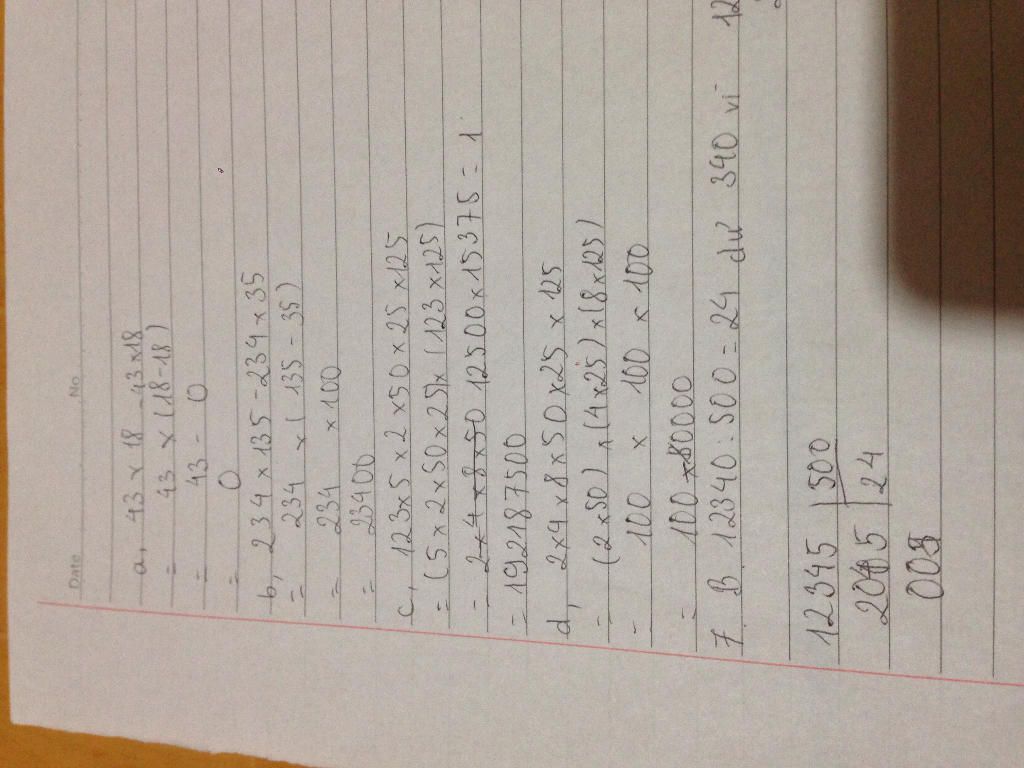 Date No
a, 43 x 18 - 43 x 18
= 43 x (18 - 18)
= 43 - 0
= 0
b, 234 x 135 - 234 x 35
= 234 x (135 - 35)
= 234 x 100
= 23400
c, 123 x 5 x 2 x 50 x 25 x 125
= (5 x 2 x 50 x 25) x (123 x 125)
= 2 x 4 x 8 x 50 12500 x 15375 = 1
= 192187500
d, 2 x 4 x 8 x 50 x 25 x 125
= (2 x 50) x (4 x 25) x (8 x 125)
= 100 x 100 x 100
= 100 x 80000
7. B. 12340 : 500 = 24 dư 340 vì 12
12345 500
2015 24
005